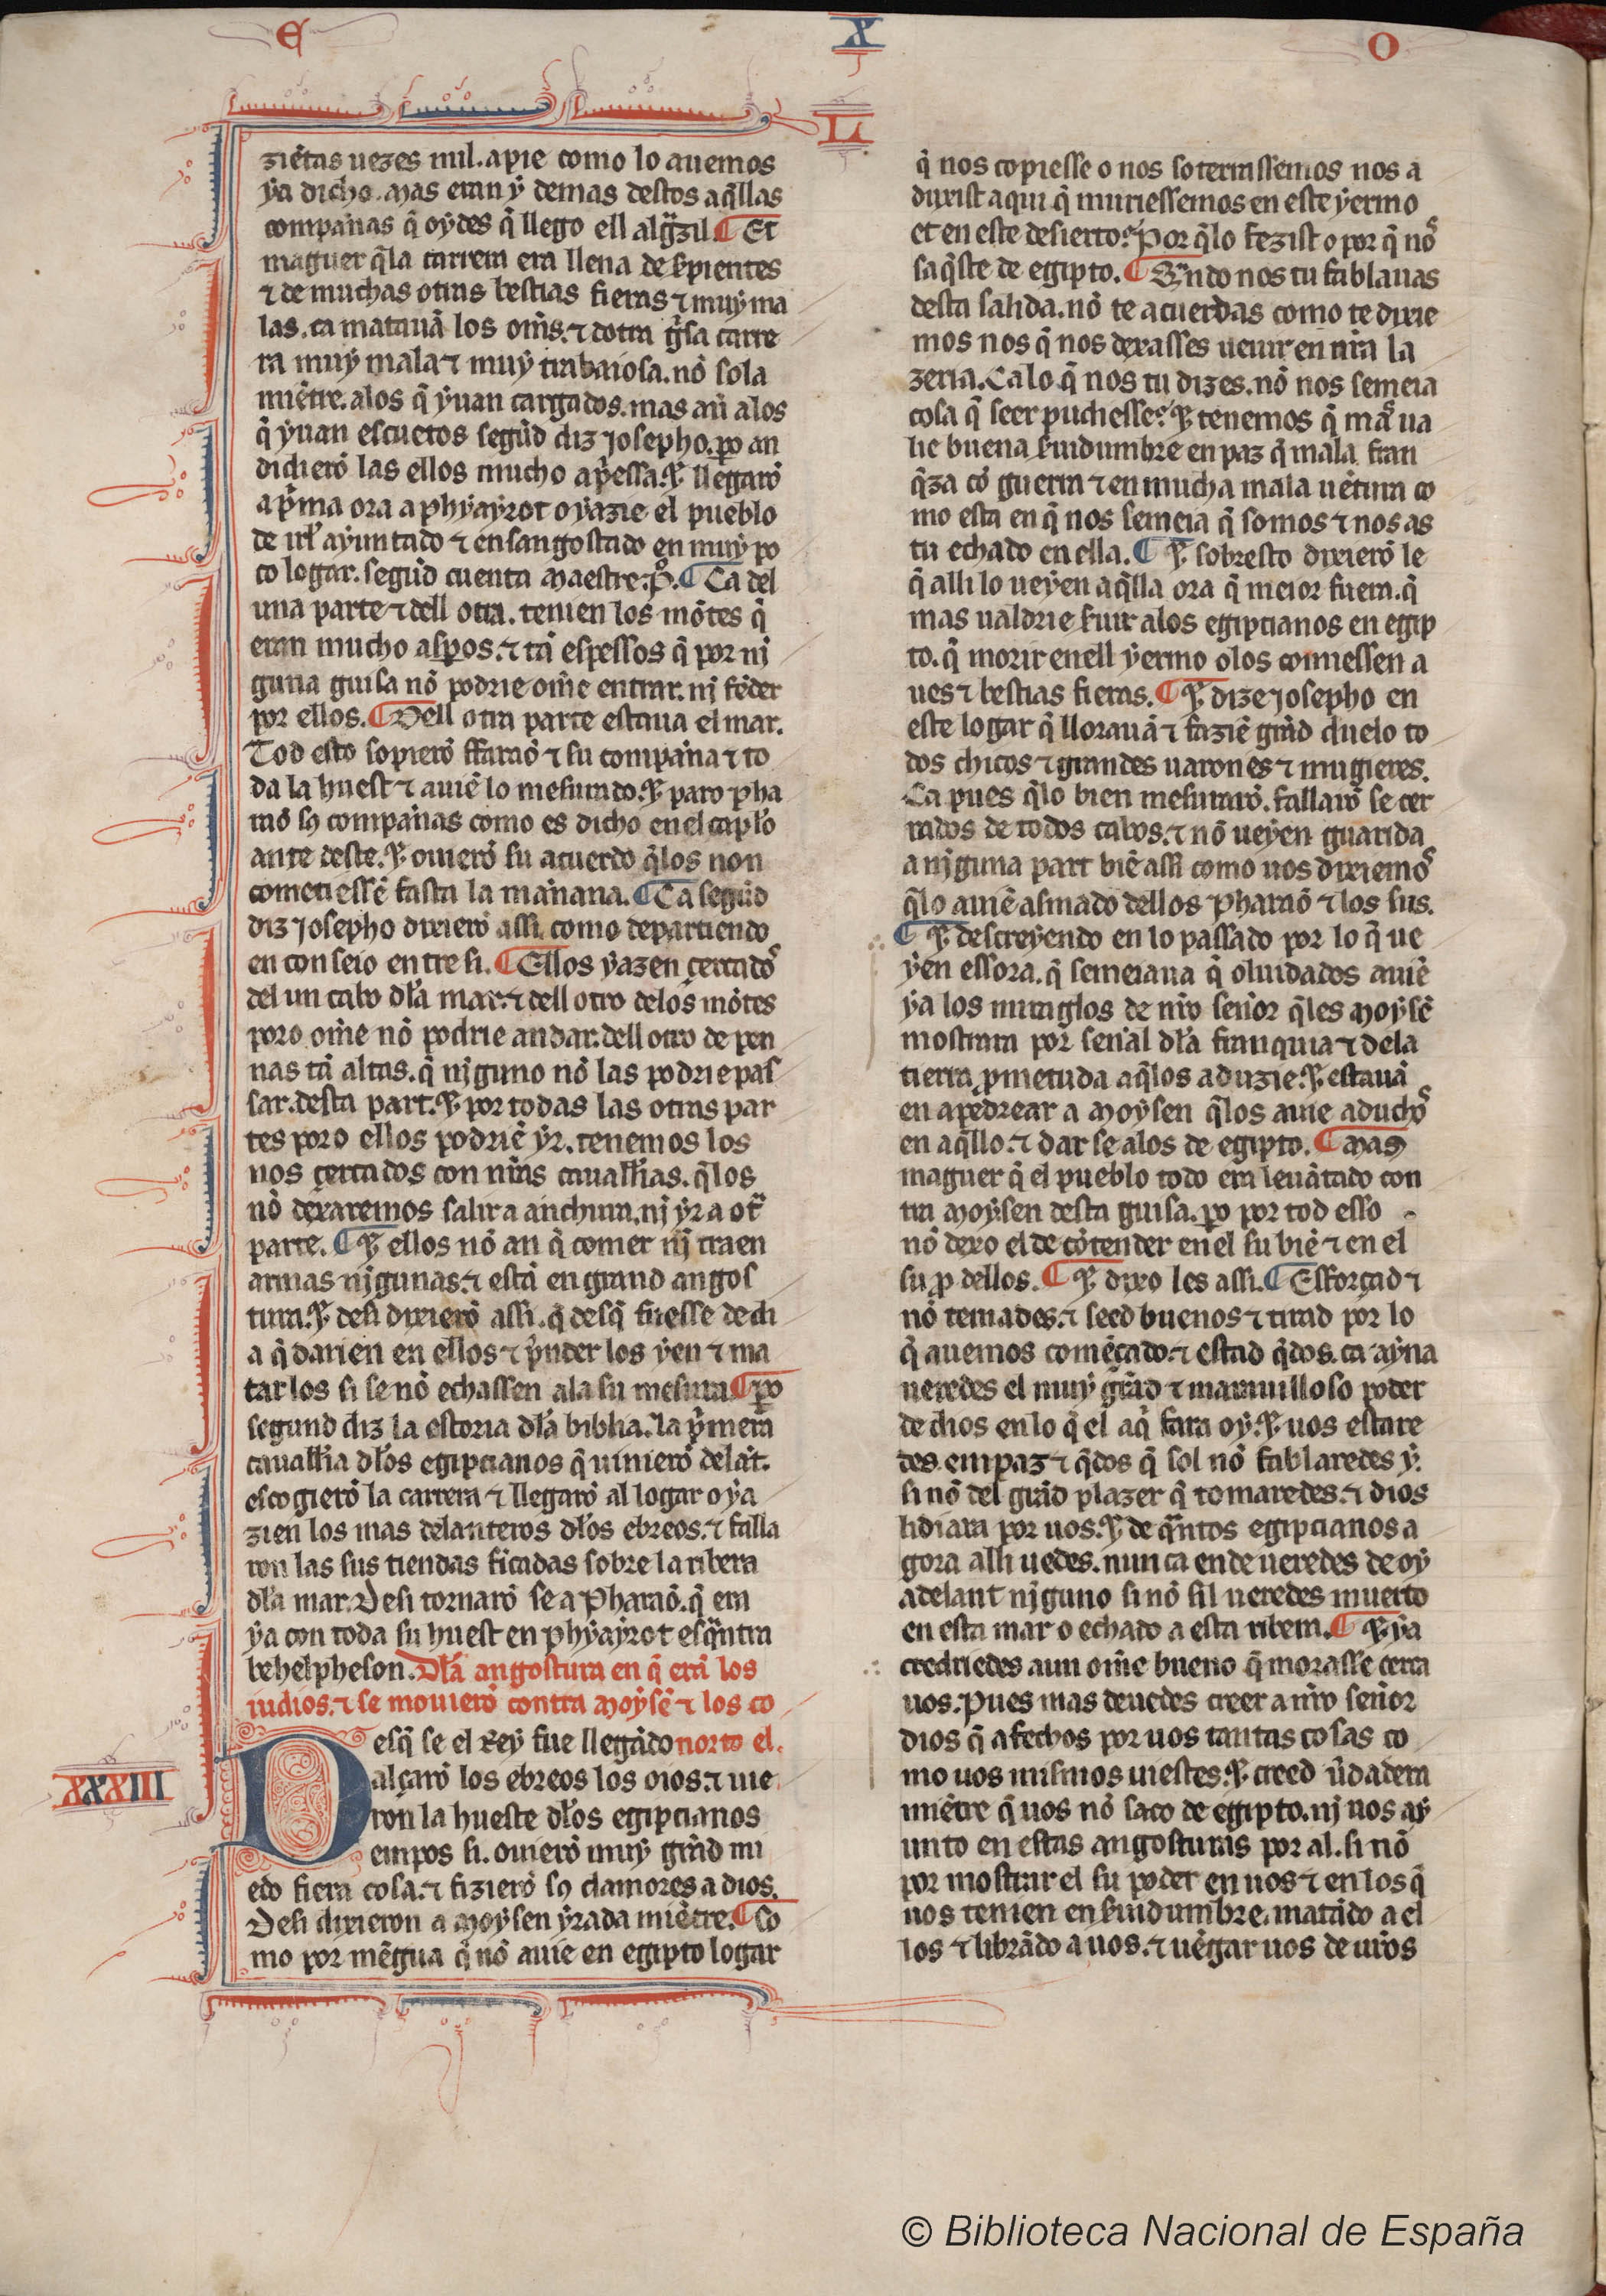 E
X
O
L
ziẽtas uezes mil. apie como lo auemos
ya dicho. Mas eran ẏ demas destos aq̃llas
compañas q̃ oydes q̃ llego ell algr̃azil ¶ Et
maguer q̃la carrera era llena de s̃pientes
⁊ de muchas otras bestias fieras ⁊ muy ma
las. ca matauã los om̃s. ⁊ dotra gⁱsa carre
ra muy mala ⁊ muy trabaiosa. nõ sola
miẽtre. alos q̃ yuan cargados. mas aũ alos
q̃ yuan escuetos segũd diz Josepho. p̲o an
didierõ las ellos mucho ap̃essa. ⁊ llegarõ
a p̃ma ora a phyayrot o yazie el pueblo
de irl̃ ayuntado ⁊ ensangostado en muy po
co logar. segũd cuenta Maestre .P̃. ¶ Ca del
una parte ⁊ dell otra. tenien los mõtes q̃
eran mucho asp̲os. ⁊ tã espessos q̃ por nĩ
guna guisa nõ podrie om̃e entrar. nj fẽder
por ellos. ¶ Dell otra parte estaua el mar.
Tod esto sopierõ ffaraõ ⁊ su compaña ⁊ to
da la huest ⁊ auiẽ lo mesurado. ⁊ paro pha
raõ sꝯ compañas como es dicho en el capl̃o
ante deste. ⁊ ouierõ su acuerdo q̃los non
cometiessẽ fasta la mañana. ¶ Ca segũd
diz Josepho dixierõ assi como departiendo
en conseio entre si. ¶ Ellos yazen çercadõs
del un cabo dl̃a mar. ⁊ dell otro delos mõtes
poro om̃e nõ podrie andar. dell otro de pen
nas tã altas. q̃ njguno nõ las podrie pas
sar. desta part. ⁊ por todas las otras par
tes poro ellos podriẽ yr. tenemos los
nos çercados con nr̃as cauall̃ias. q̃los
nõ dexaremos salir a anchura. nj yr a ot̃
parte. ¶ ⁊ ellos nõ an q̃ comer nj traen
armas njgunas. ⁊ estã en grand angos
tura. ⁊ desi dixierõ assi. q̃ desq̃ fuesse de di
a q̃ darien en ellos ⁊ p̃nder los yen ⁊ ma
tar los si se nõ echassen ala su mesura ¶ p̲o
segund diz la estoria dl̃a biblia. la p̃mera
cauall̃ia dl̃os egipcianos q̃ uinierõ delãt.
escogierõ la carrera ⁊ llegarõ al logar o ya
zien los mas delanteros dl̃os ebreos. ⁊ falla
ron las sus tiendas ficadas sobre la ribera
dl̃a mar. Desi tornarõ se a Pharaõ. q̃ era
ya con toda su huest en phyayrot esq̃ntra
behelpheson. Dl̃a angostura en q̃ erã los
iudios. ⁊ se mouierõ contra Moysẽ ⁊ los co
norto el.
XXXIII
Desq̃ se el Rey fue llegãdo
alçarõ los ebreos los oios. ⁊ uie
ron la hueste dl̃os egipcianos
empos si. ouierõ muy grãd mi
edo fiera cosa. ⁊ fizierõ sꝯ clamores a dios.
Desi dixieron a Moysen yrada miẽtre. ¶ Co
mo por mẽgua q̃ nõ auie en egipto logar
q̃ nos copiesse o nos soterrassemos nos a
duxist aqui q̃ muriessemos en este yermo
et en este desierto? Por q̃lo fezist o por q̃ nõs
saq̃ste de egipto. ¶ Quãndo nos tu fablauas
desta salida. nõ te acuerdas como te dixie
mos nos q̃ nos dexasses ueuir en nr̃a la
zeria. Ca lo q̃ nos tu dizes. nõ nos semeia
cosa q̃ seer pudiesse? ⁊ tenemos q̃ mãs ua
lie buena s̃uidumbre en paz q̃ mala fran
q̃za cõ guerra ⁊ en mucha mala uẽtura co
mo esta en q̃ nos semeia q̃ somos ⁊ nos as
tu echado en ella. ¶ ⁊ sobresto dixierõ le
q̃ alli lo ueyen aq̃lla ora q̃ meior fuera. q̃
mas ualdrie s̃uir alos egipcianos en egip
to. q̃ morir enell yermo o los comiessen a
ues ⁊ bestias fieras. ¶ ⁊ dize Josepho en
este logar q̃ llorauã ⁊ faziẽ grãd duelo to
dos chicos ⁊ grandes uarones ⁊ mugieres.
Ca pues q̃lo bien mesurarõ. fallarõ se cer
rados de todos cabos. ⁊ nõ ueyen guarida
a njguna part biẽ assi como uos dixiemõs
q̃lo auiẽ asmado dellos Pharaõ ⁊ los sus.
¶ ⁊ descreyendo en lo passado por lo q̃ ue
yen essora. q̃ semeiaua q̃ oluidados auiẽ
ya los miraglos de nr̃o señor q̃les Moysẽ
mostrara por señal dl̃a franquia ⁊ dela
tierra p̲metuda aq̃los aduzie. ⁊ estauã
en apedrear a Moysen q̃los auie aduchõs
en aq̃llo. ⁊ dar se alos de egipto. ¶ Mas
maguer q̃ el pueblo todo era leuãtado con
tra Moysen desta guisa. p̲o por tod esso
nõ dexo el de cõtender en el su biẽ ⁊ en el
su p̲ dellos. ¶ ⁊ dixo les assi. ¶ Esforçad ⁊
nõ temades. ⁊ seed buenos ⁊ tirad por lo
q̃ auemos comẽçado. ⁊ estad q̃dos. ca ayna
ueredes el muy grãd ⁊ marauilloso poder
de dios en lo q̃ el aq̃ fara oy. ⁊ uos estare
des. en paz ⁊ q̃dos q̃ sol nõ fablaredes y.
si nõ del grãd plazer q̃ tomaredes. ⁊ dios
lidiara por uos. ⁊ de q̃ntos egipcianos a
gora alli uedes. nunca ende ueredes de oy
adelant njguno si nõ sil ueredes muerto
en esta mar o echado a esta ribera. ¶ ⁊ ya
credriedes aun om̃e bueno q̃ morasse cerca
uos. Pues mas deuedes creer a nr̃o señor
dios q̃ a fechos por uos tantas cosas co
mo uos mismos uiestes. ⁊ creed ũdadera
miẽtre q̃ uos nõ saco de egipto. nj uos ay
unto en estas angosturas por al. si nõ
por mostrar el su poder en uos ⁊ en los q̃
uos tenien en s̃uidumbre. matãdo a el
los ⁊ librãdo a uos. ⁊ uẽgar uos de ur̃os
© Biblioteca Nacional de España